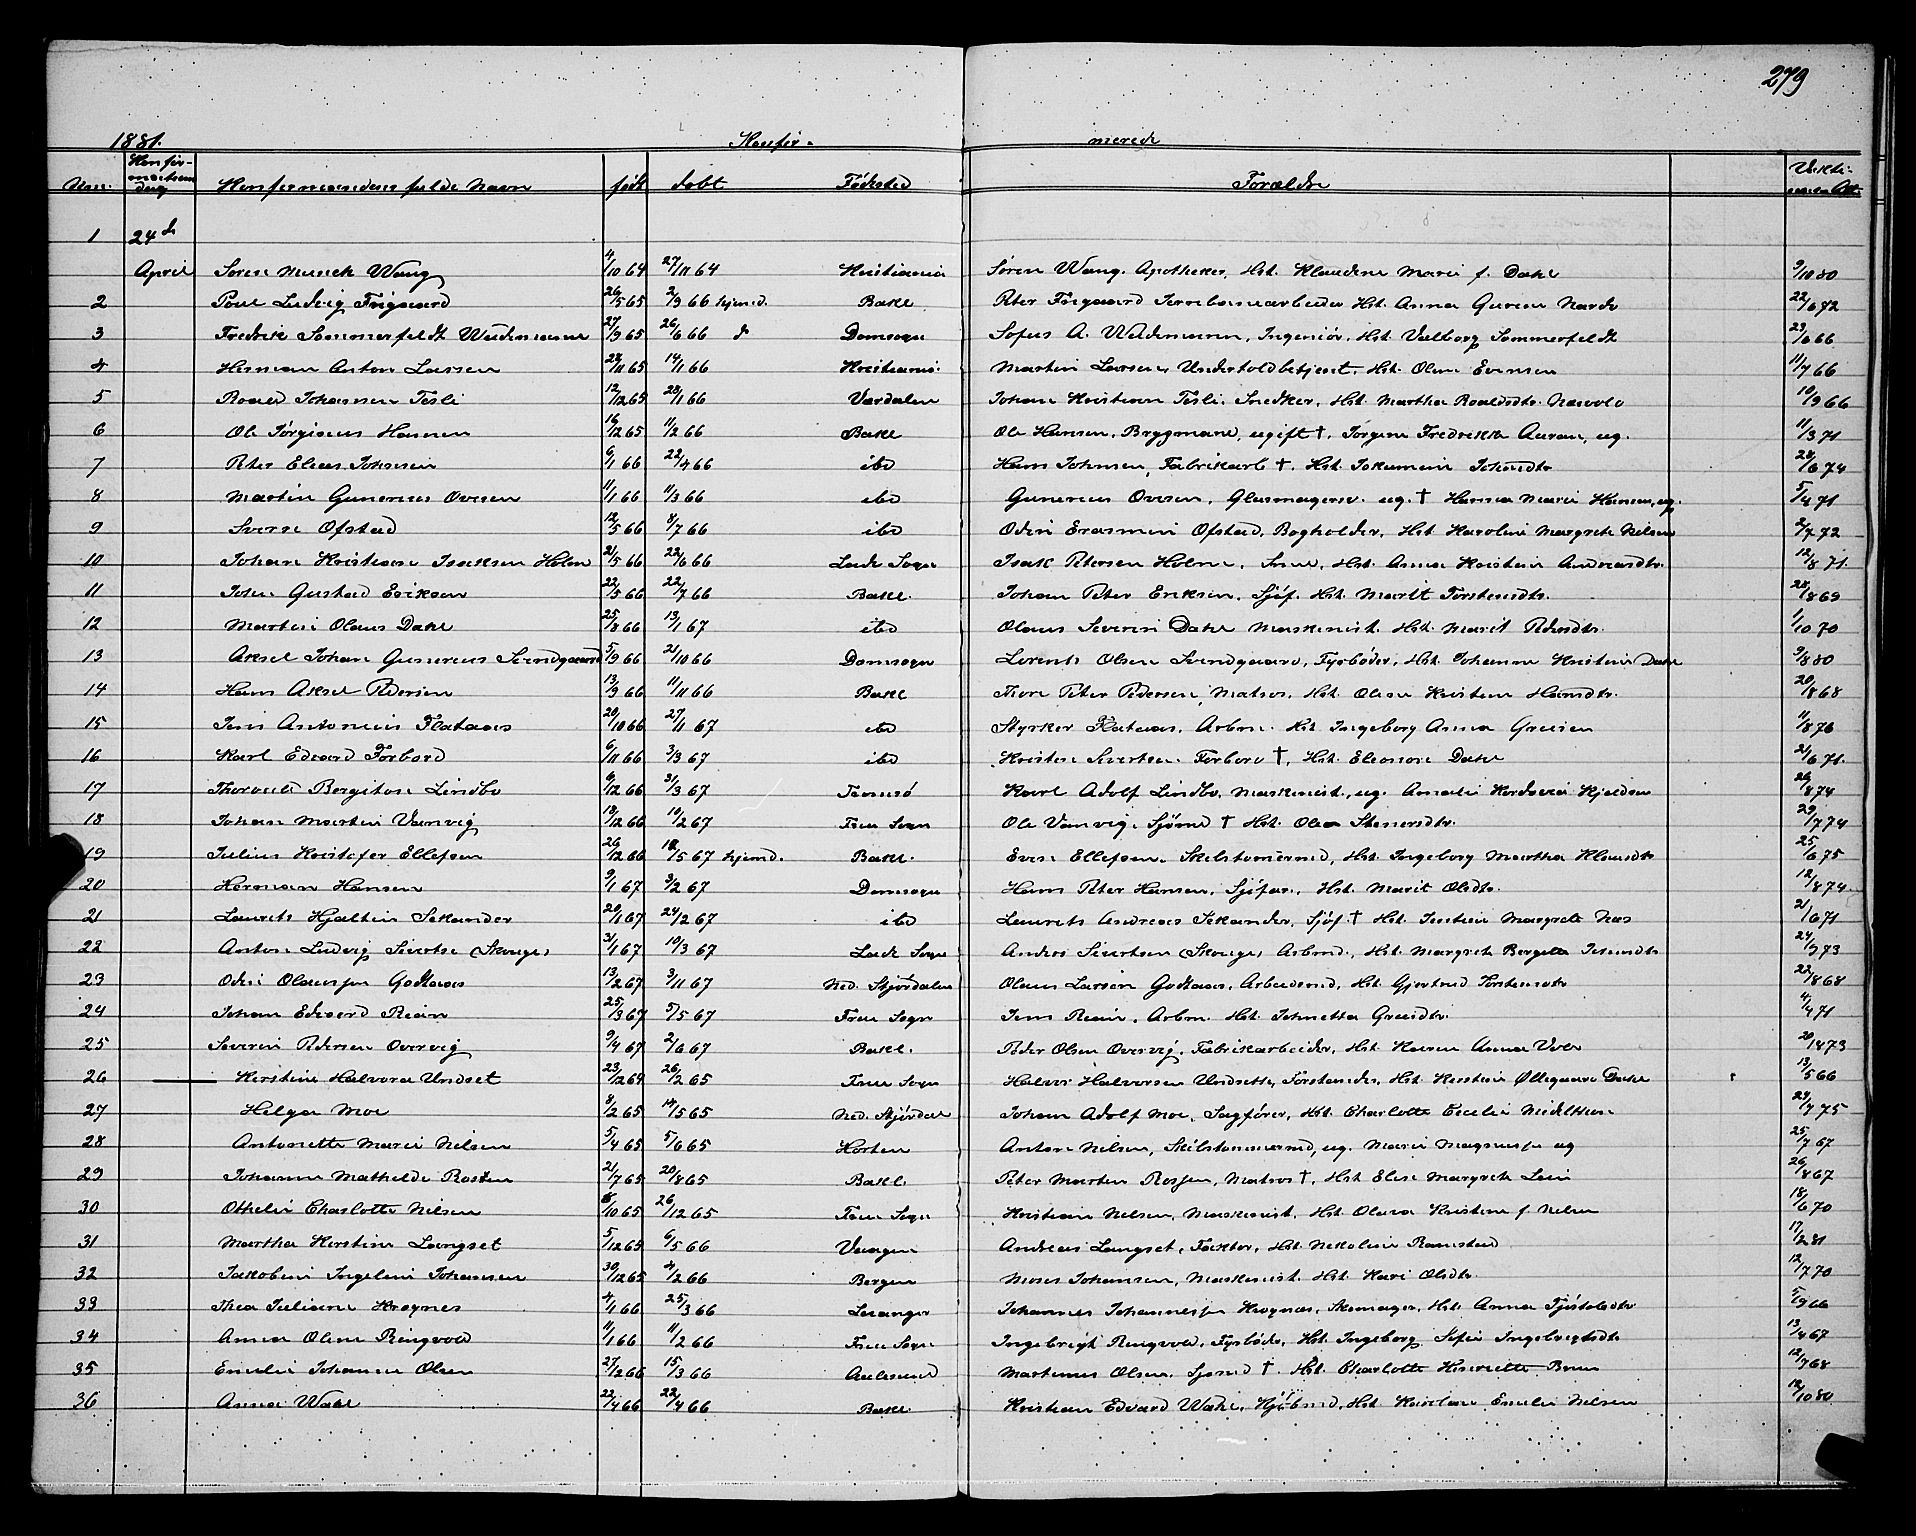 279
1881. Konfir- merede
Num. Konfirmations dag Konfirmandens fulde Navn født døbt Fødested Forældre Vakti- Att.
1 24de
April Søren Munck Wang 4/10 64 27/11 64 Kristiania Søren Wang. Apotheker, Hst. Klaudine Marie f. Dahl 9/10 80
2 Poul Ludvig Frigaard 26/5 65 2/9 66 hjemd. Bakl Peter Frigaard Jernbanearbeider Hst. Anna Gurine 22/6 72
3 Fredrik Sommerfeldt Weidemann 27/9 65 26/6 66 d Domsogn Sofus A. Weidemann, Ingeniør, Hst. Valborg Sommerfeldt 23/6 66
4 Herman Anton Larsen 24/11 65 14/1 66 Kristians. Martin Larsen, Undertoldbetjent, Hst. Oline Evensen 11/7 66
5 Roald Johansen Tesli 12/12 65 28/1 66 Værdalen Johan Kristian Tesli. Snedker, Hst. Martha Roaldsdtr. 10/9 66
6 Ole Jørginus Hansen 16/12 65 11/2 66 Bakl Ole Hansen, Brygmand, ugift †, Jørgine Fredrikke Auran, ug. 11/3 71
7 Peter Elias Johnsen 6/1 66 22/4 66 ibd Hans Johnsen, Fabrikarb †. Hst. 28/6 74
8 Martin Gunerius Ovesen 11/1 66 11/3 66 ibd Gunerius Ovesen, Glasmagersv. ug. † Hanna Marie Hansen, ug. 5/4 71
9 Sverre Ofstad 12/5 66 8/7 66 ibd Odin Erasmus Ofstad, Bogholder, Hst. Karoline Margrete Nilsen 2/7 72
10 Johan Kristian Isaksen Holm 21/5 66 22/6 66 Lade Sogn Isak Petersen Holm, Hst. Anna Kristine Andreasdtr. 12/8 71.
11 John Gustad Eriksen 22/5 66 22/7 66 Bakl. Johan Peter Eriksen, Sjøf. Hst. Marit Torstensdtr. 28/8 69
12 Martin Olaus Dahl 25/8 66 13/1 67 ibd Olaus Severin Dahl Maskinist. Hst. Marit Pedersdtr. 1/10 70
13 Aksel Johan Gunerius Svendgaard 5/9 66 21/10 66 Domsogn Lorents Olsen Svendgaard, Fyrbøder, Hst. Johanne Kristine Dahl 9/8 80
14 Hans Aksel Pedersen 13/9 66 11/11 66 Bakl Thore Peter Pedersen, Matros, Hst. Oline Kristine Hansdtr. 20/8 68
15 Jens Antonius Flataas 20/10 66 27/1 67 ibd Styrker Flataas, Arbm. Hst. Ingeborg Anna 11/8 76
16 Karl Edvard Forbord 6/11 66 3/3 67 ibd Kristen Sivertsen Forbord †, Hst. Eleonore Dahl 21/6 71.
17 Thorvald Bergiton Lindbo 6/12 66 31/3 67 Tromsø Karl Adolf Lindbo, Maskinist, ug. Amalie Kjeldsen 26/8 74
18 Johan Martin Vanvig 18/12 66 10/2 67 Frue Sogn Ole Vanvig. Sjømd † Hst. Olea Stenersdtr. 29/7 74
19 Julius Kristofer Ellefsen 26/12 66 12/5 67 hjemd. Bakl. Even Ellefsen. Skibstømrmd, Hst. Ingeborg Martha Klausdtr 25/6 75
20 Herman Hansen 9/1 67 3/2 67 Domsogn Hans Peter Hansen, Sjøfar., Hst. Marit Olsdtr. 12/8 74.
21 Laurits Hjaltin Sekander 20/1 67 24/2 67 ibd Laurits Andreas Sekander, Sjøf. † Hst. Margrete 21/6 71
22 Anton Ludvig Sivertsen (Skauge) 31/1 67 10/3 67 Lade Sogn Anders Sivertsen (Skauge) Arbmd., Hst. Margrete 24/9 73
23 Odin Olaussen Godtaas 13/2 67 3/11 67 Ned. Stjørdalen Olaus Larsen Godtaas, Arbeidsmd, Hst. Gjertrud Torstensdtr 22/8 68
24 Johan Edvard Rian 25/3 67 5/5 67 Frue Sogn Jens Rian, Arbm. Hst. Johnetta 4/4 71
25 Severin Pedersen Overvig 9/4 67 2/6 67 Bakl. Peder Olsen Overvig, Fabrikarbeider, Hst. Karen Anna 20/8 73
26 Kerstine Halvora Undset 23/12 64 26/2 65 Frue Sogn Halvor Halvorsen Undsette, Forstander, Hst. Kerstine Øllegaard Dahl 13/5 66
27 Helga Moe 8/2 65 14/5 65 Ned. Stjørdal Johan Adolf Moe, Sagfører, Hst. Charlotte Cecilie 29/7 75
28 Antonette Marie Nilsen 5/4 65 5/6 65 Horten Anton Nilsen, Skibstømmermd, ug. Marie Magnusen ug 25/7 67
29 Johanne Mathilde Rosten 21/7 65 20/8 65 Bakl. Peter Morten Rosten, Matros †, Hst Elise Margrete Lein 26/8 67
30 Othelie Charlotte Nilsen 8/10 65 26/12 65 Frue Sogn Kristian Nilsen, Maskinist, Hst. Olava Kristine f. Nilsen 18/6 70
31 Martha Kerstine Langset 5/12 65 6/5 66 Vaagen Andreas Langset, Faktor, Hst. Nikoline Ramstad 17/2 81
32 Jakobine Ingeline Johansen 30/12 65 4/2 66 Bergen Moses Johansen, Maskinist. Hst. Kari Olsdtr. 12/7 70
33 Thea Juliane Krognes 4/1 66 25/3 66 Levanger Johannes Johannessen Krognes, Skomager, Hst. Anna 5/9 66
34 Anna Oline Ringvold 11/1 66 11/2 66 Frue Sogn Ingebrigt Ringvold, Fyrbøder, Hst. Ingeborg Sofie Ingebrigtsdtr 13/4 67
35 Emilie Johanne Olsen 27/2 66 15/3 66 Aalesund Martinus Olsen, Sjømd †. Hst. Charlotte Henriette 12/7 68
36 Anna Wahl 22/4 66 22/4 66 Bakl. Kristian Edvard Wahl, Kjøbmd, Hst. Karoline Emilie Nilsen 12/10 80